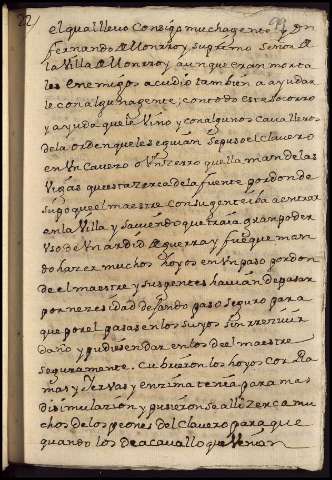 22
el qual llevo consigo mucha gente y don
fernando de Monrroy su primo señor de
la Villa de Monrroy aunque eran morta
les enemigos acudio tambien a ayudar
le con alguna gente; con todo este socorro
y ayuda que le vino y con algunos cavalleros
de la orden que le seguian se puso el clavero
en un cavero o un zerro que llaman de las
Vigas questa zerca de la fuente por donde
supo que el maestre con su gente iba a entrar
en la Villa y saviendo que traia gran poder
Uso de un ardid de guerra y fue que man
do hazer muchos hoyos en un paso por don
de el maestre y sus gentes havian de pasar
por nezesidad dejando paso seguro para
que por el pasasen los suyos sin rrezivir
daño y pudiesen dar en los del maestre
seguramente. Cubrieron los hoyos con Ra
mas y Yervas y enzima tenia para mas
disimulazion y pusieronse alli zerca mu
chos de los peones del Clavero para que
quando los de a cavallo que venian